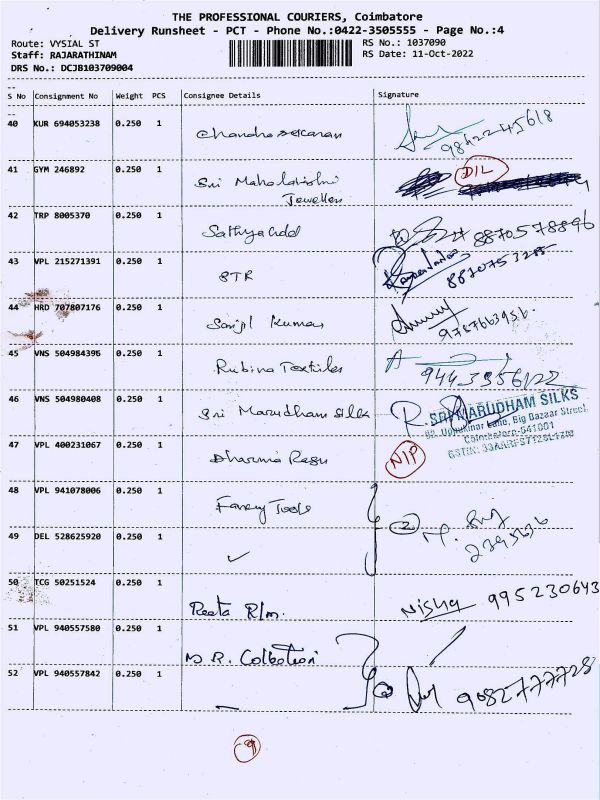 THE PROFESSIONAL COURIERS, Coimbatore
Delivery Runsheet - PCT - Phone No.:0422-3505555 - Page No.:4
Route: VYSIAL ST RS No.: 1037090
Staff: RAJARATHINAM RS Date: 11-Oct-2022
DRS No.: DCJB103709004
S No Consignment No Weight PCS Consignee Details Signature
40 KUR 694053238 0.250 1 Chandrasekaran 98422-45618
41 GYM 246892 0.250 1 Sri Mahalakshmi Jewellers D/L
42 TRP 8005370 0.250 1 8870578896
43 VPL 215271391 0.250 1 STR
44 HRD 707807176 0.250 1 Kumar
45 VNS 504984396 0.250 1 Rubina Textiles
46 VNS 504980408 0.250 1 Sri Marudham Silk
SRI MARUDHAM SILKS
Lane, Big Bazaar Street,
Coimbatore-641001
47 VPL 400231067 0.250 1 Dharma Raju N/P
48 VPL 941078006 0.250 1 Fancy Tools 2
49 DEL 528625920 0.250 1
50 TCG 50251524 0.250 1 Reeta R/m. Nisha 995230643
51 VPL 940557580 0.250 1 M.R. Collection
52 VPL 940557842 0.250 1 9082777728
9